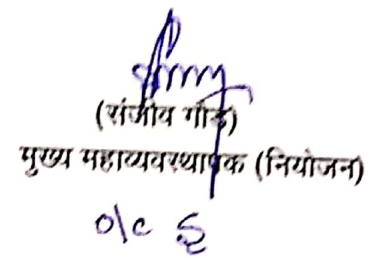 (संजीव गौड़)
मुख्य महाव्यवस्थापक (नियोजन)
o/c